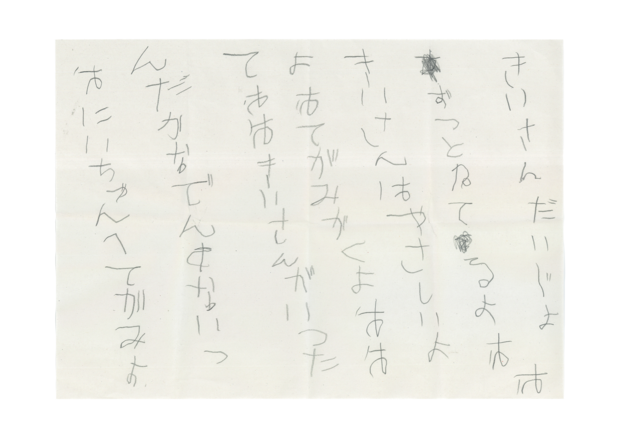 きいさんだいじょお
ずっとねてるよお
きいさんはやさしいよ
よおてがみかくよおは
ておはきいさんがいった
んだがなでんないっ
おにいちゃんへてがみよ